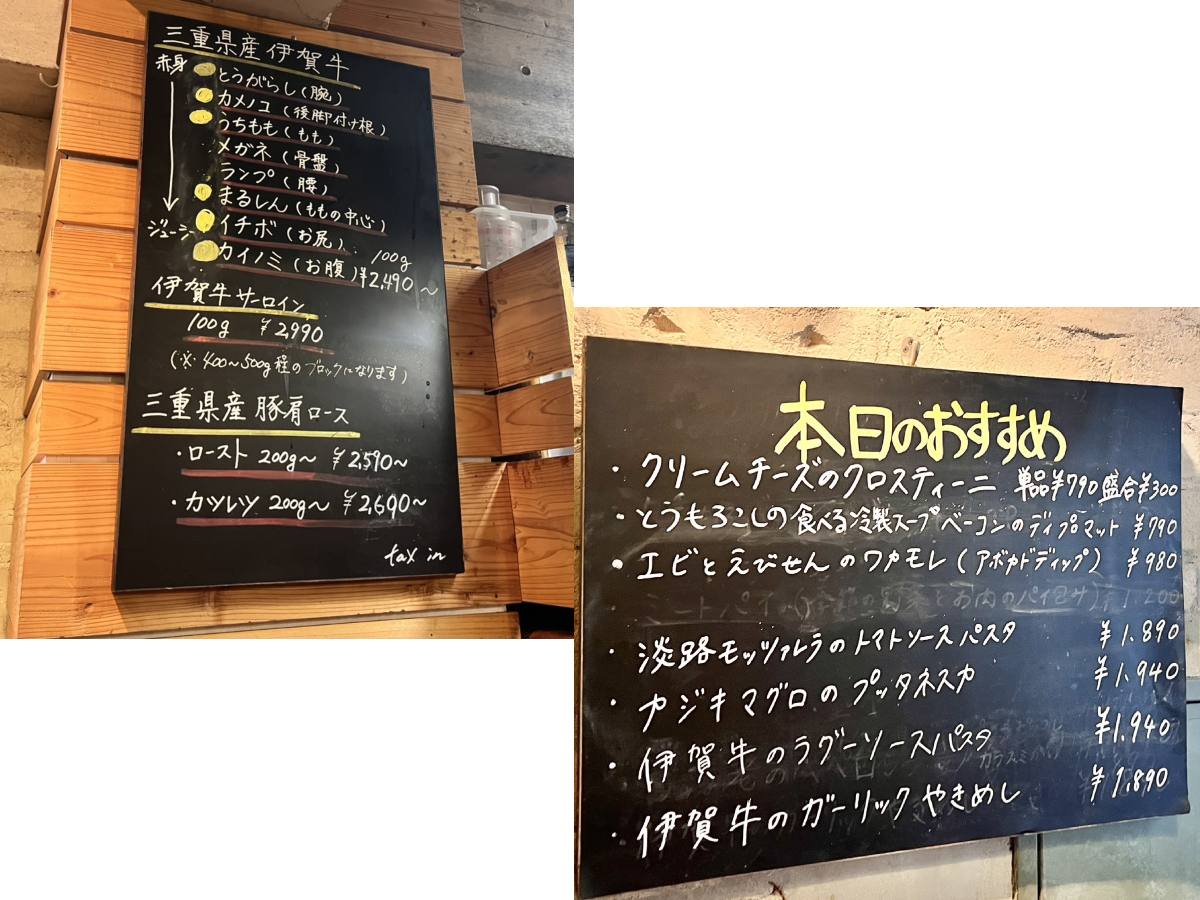 三重県産 伊賀牛
赤身
とうがらし(腕)
カメノコ(後脚付け根)
うちもも(もも)
メガネ(骨盤)
ランプ(腰)
まるしん(ももの中心)
ジューシー
イチボ(お尻)
カイノミ(お腹) 100g ¥2,490~
伊賀牛サーロイン
100g ¥2,990
(※400~500g程のブロックになります)
三重県産 豚肩ロース
・ロースト 200g~ ¥2,590~
・カツレツ 200g~ ¥2,690~
tax in
本日のおすすめ
・クリームチーズのクロスティーニ 単品¥790 盛合¥300
・とうもろこしの食べる冷製スープ ベーコンのディプロマット ¥790
・エビとえびせんのワカモレ(アボカドディップ) ¥980
・淡路モッツァレラのトマトソースパスタ ¥1.890
・カジキマグロのプッタネスカ ¥1.940
・伊賀牛のラグーソースパスタ ¥1.940
・伊賀牛のガーリックやきめし ¥1.890